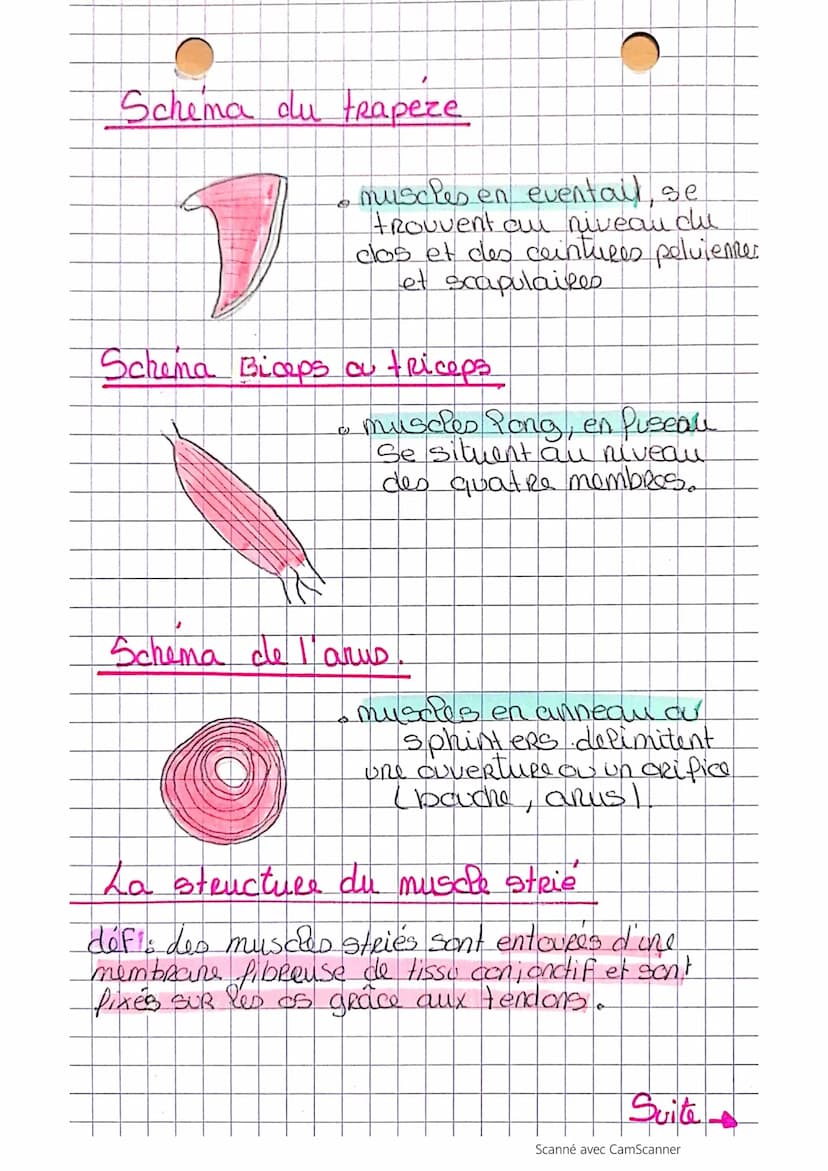 Schéma du trapéze
muscles en eventail, se
trouvent au niveau du
dos et des ceintures pelviennes
et scapulaires
Schéma Biceps ou triceps
muscles long, en fuseau
se situent au niveau
des quatre membres.
Schéma de l'anus.
muscles en anneau ou
sphinters delimitent
une ouverture ou un orifice
(bouche, anus).
La structure du muscle strié
défi: des muscles striés sont entourés d'une
membrane fibreuse de tissu conjonctif et sont
fixés sur les os grâce aux tendons.
Suite
Scanné avec CamScanner